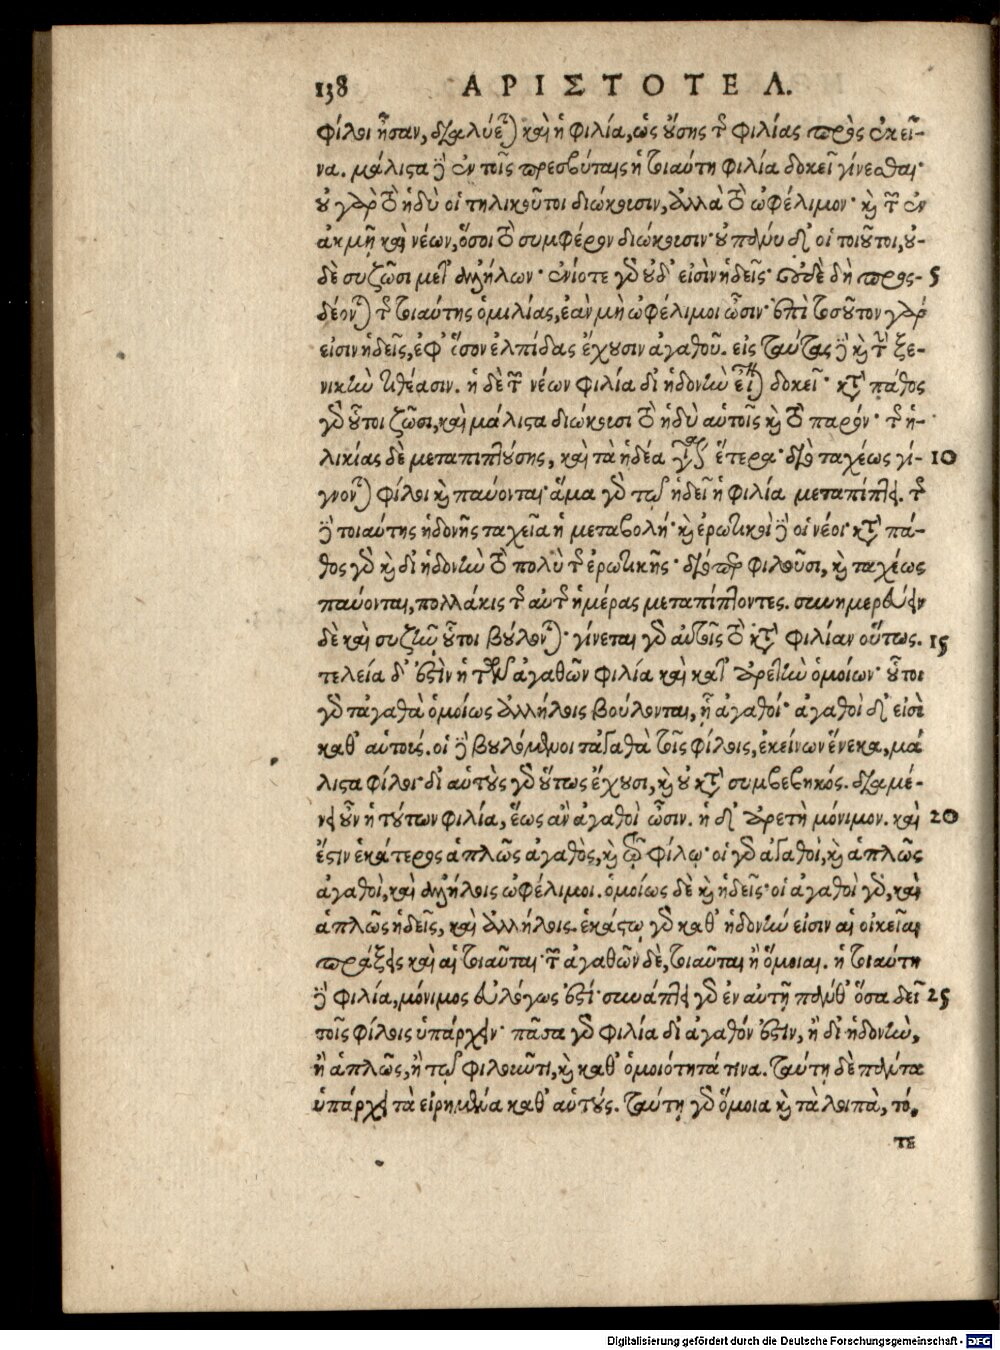 138 ΑΡΙΣΤΟΤΕΛ.
φίλοι ἦσαν, διαλύεται καὶ ἡ φιλία, ὡς οὔσης τῆς φιλίας πρὸς ἐκεῖ-
να. μάλιστα δὲ ἐν τοῖς πρεσβύταις ἡ τοιαύτη φιλία δοκεῖ γίνεσθαι·
οὐ γὰρ τὸ ἡδὺ οἱ τηλικοῦτοι διώκουσιν, ἀλλὰ τὸ ὠφέλιμον· καὶ τῶν ἐν
ἀκμῇ καὶ νέων, ὅσοι τὸ συμφέρον διώκουσιν· οὐ πάνυ δ' οἱ τοιοῦτοι, οὐ-
δὲ συζῶσι μετ' ἀλλήλων· ἐνίοτε γὰρ οὐδ' εἰσὶν ἡδεῖς· οὐδὲ δὴ προσ- 5
δέονται τῆς τοιαύτης ὁμιλίας, ἐὰν μὴ ὠφέλιμοι ὦσιν· ἐπὶ τοσοῦτον γάρ
εἰσιν ἡδεῖς, ἐφ' ὅσον ἐλπίδας ἔχουσιν ἀγαθοῦ. εἰς ταύτας δὲ καὶ τὴν ξε-
νικὴν τιθέασιν. ἡ δὲ τῶν νέων φιλία δι' ἡδονὴν εἶναι δοκεῖ· κατὰ πάθος
γὰρ οὗτοι ζῶσι, καὶ μάλιστα διώκουσι τὸ ἡδὺ αὑτοῖς καὶ τὸ παρόν· τῆς ἡ-
λικίας δὲ μεταπιπτούσης, καὶ τὰ ἡδέα γίνεται ἕτερα· διὸ ταχέως γί- 10
γνονται φίλοι καὶ παύονται· ἅμα γὰρ τῷ ἡδεῖ ἡ φιλία μεταπίπτει. τῆς
δὲ τοιαύτης ἡδονῆς ταχεῖα ἡ μεταβολή· καὶ ἐρωτικοὶ δὲ οἱ νέοι· κατὰ πά-
θος γὰρ καὶ δι' ἡδονὴν τὸ πολὺ τῆς ἐρωτικῆς· διόπερ φιλοῦσι, καὶ ταχέως
παύονται, πολλάκις τῆς αὐτῆς ἡμέρας μεταπίπτοντες. συνημερεύειν
δὲ καὶ συζῆν οὗτοι βούλονται· γίνεται γὰρ αὐτοῖς τὸ κατὰ φιλίαν οὕτως. 15
τελεία δ' ἐστὶν ἡ τῶν ἀγαθῶν φιλία καὶ κατ' ἀρετὴν ὁμοίων· οὗτοι
γὰρ τἀγαθὰ ὁμοίως ἀλλήλοις βούλονται, ᾗ ἀγαθοί· ἀγαθοὶ δ' εἰσὶ
καθ' αὑτούς. οἱ δὲ βουλόμενοι τἀγαθὰ τοῖς φίλοις, ἐκείνων ἕνεκα, μά
λιστα φίλοι· δι' αὑτοὺς γὰρ οὕτως ἔχουσι, καὶ οὐ κατὰ συμβεβηκός. διαμέ-
νει οὖν ἡ τούτων φιλία, ἕως ἂν ἀγαθοὶ ὦσιν. ἡ δ' ἀρετὴ μόνιμον. καὶ 20
ἔστιν ἑκάτερος ἁπλῶς ἀγαθὸς, καὶ τῷ φίλῳ· οἱ γὰρ ἀγαθοὶ, καὶ ἁπλῶς
ἀγαθοὶ, καὶ ἀλλήλοις ὠφέλιμοι. ὁμοίως δὲ καὶ ἡδεῖς· οἱ ἀγαθοὶ γὰρ, καὶ
ἁπλῶς ἡδεῖς, καὶ ἀλλήλοις. ἑκάστῳ γὰρ καθ' ἡδονήν εἰσιν αἱ οἰκεῖαι
πράξεις καὶ αἱ τοιαῦται· τῶν ἀγαθῶν δὲ, τοιαῦται ἢ ὅμοιαι. ἡ τοιαύτη
δὲ φιλία, μόνιμος εὐλόγως ἐστί· συνάπτει γὰρ ἐν αὑτῇ πάνθ' ὅσα δεῖ 25
τοῖς φίλοις ὑπάρχειν· πᾶσα γὰρ φιλία δι' ἀγαθόν ἐστιν, ἢ δι' ἡδονὴν,
ἢ ἁπλῶς, ἢ τῷ φιλοῦντι, καὶ καθ' ὁμοιότητά τινα. ταύτῃ δὲ πάντα
ὑπάρχει τὰ εἰρημένα καθ' αὑτούς. ταύτῃ γὰρ ὅμοια καὶ τὰ λοιπὰ, τό,
τε
Digitalisierung gefördert durch die Deutsche Forschungsgemeinschaft - DFG